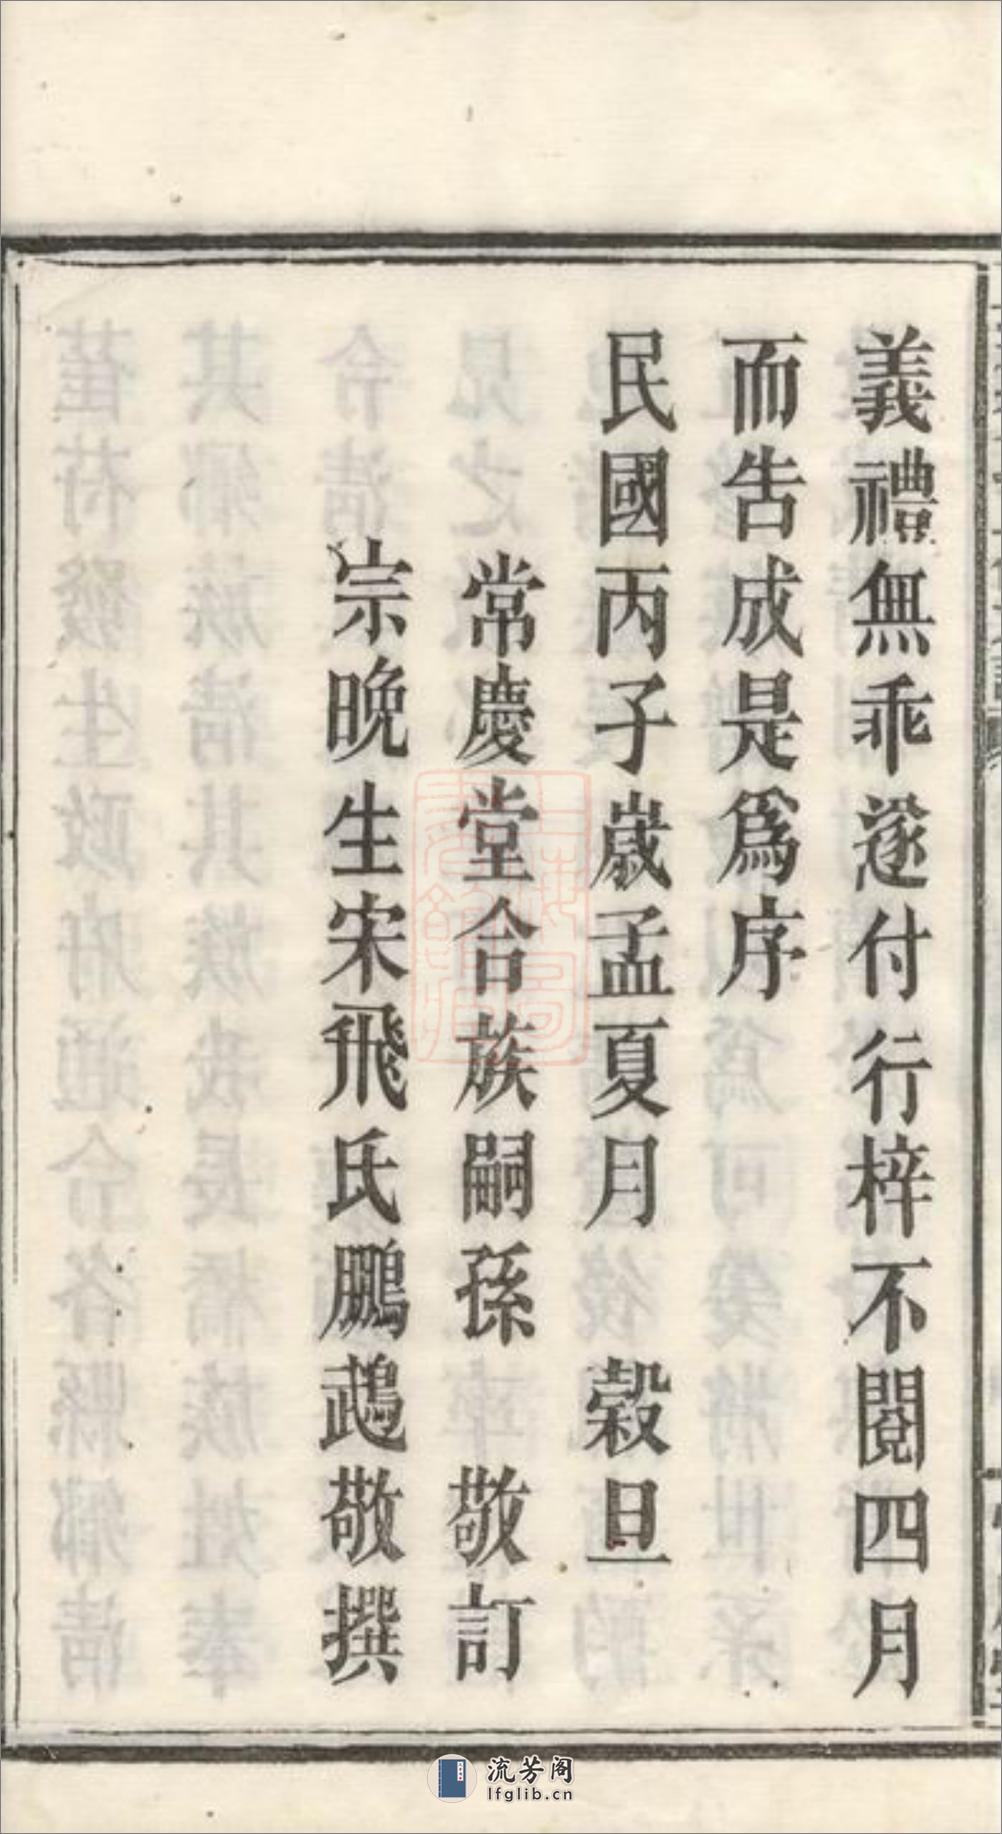 義禮無乖遂付行梓不閱四月
而告成是爲序
民國丙子歲孟夏月 穀旦
常慶堂合族嗣孫 敬訂
宗晚生宋飛氏鵬鵡敬撰
流芳阁
lfglib.cn